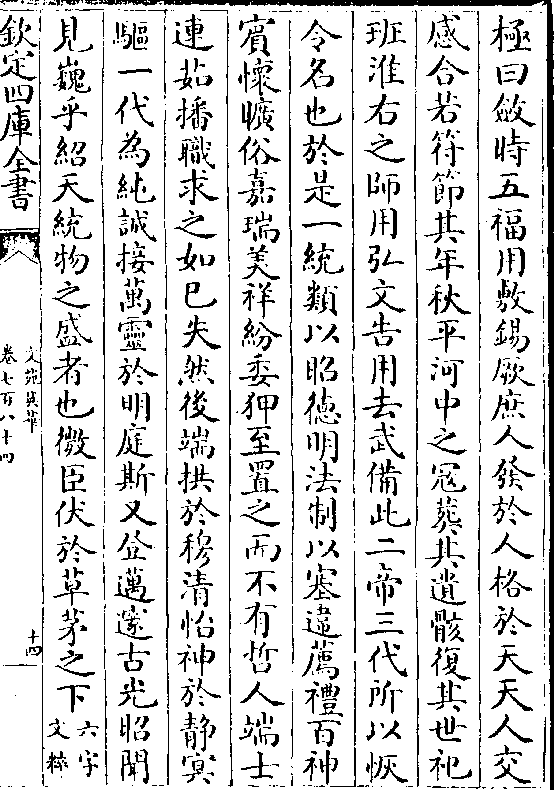 極曰斂時五福用敷錫厥庶人發於人格於天天人交
感合若符節其年秋平河中之冦葬其遺骸復其世祀
班淮右之師用弘文告用去武備此二帝三代所以恢
令名也於是一統類以昭德明法制以塞違薦禮百神
賓懷曠俗嘉瑞美祥紛委狎至置之而不有哲人端士
連茹播職求之如已失然後端拱於穆清怡神於静㝠
驅一代為純誠接萬靈於明庭斯又登邁邃古光昭聞
見巍乎紹天統物之盛者也微臣伏於草茅之下六字文粹
欽定四庫全書
文苑英華
卷七百八十四
十四